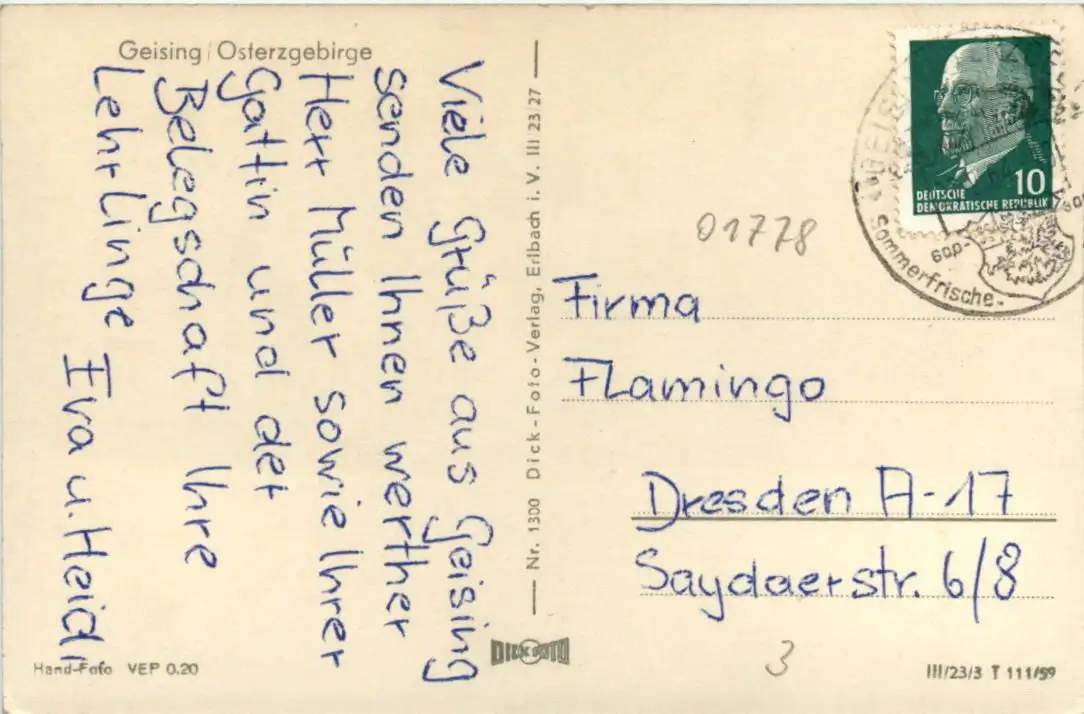 Geising/Osterzgebirge
Viele Grüße aus Geising
senden Ihnen werther
Herr Müller sowie Ihrer
Gattin und der
Belegschaft Ihre
Lehrlinge
Eva u. Heidi
Nr. 1300 Dick-Foto-Verlag, Erlbach i. V. III 23 27
DEUTSCHE
DEMOKRATISCHE REPUBLIK
10
Sommerfrische
01778
Firma
Flamingo
Dresden A-17
Saydaerstr. 6/8
DICK FOTO
3
Hand-Foto VEP 0.20
III/23/3 T 111/59